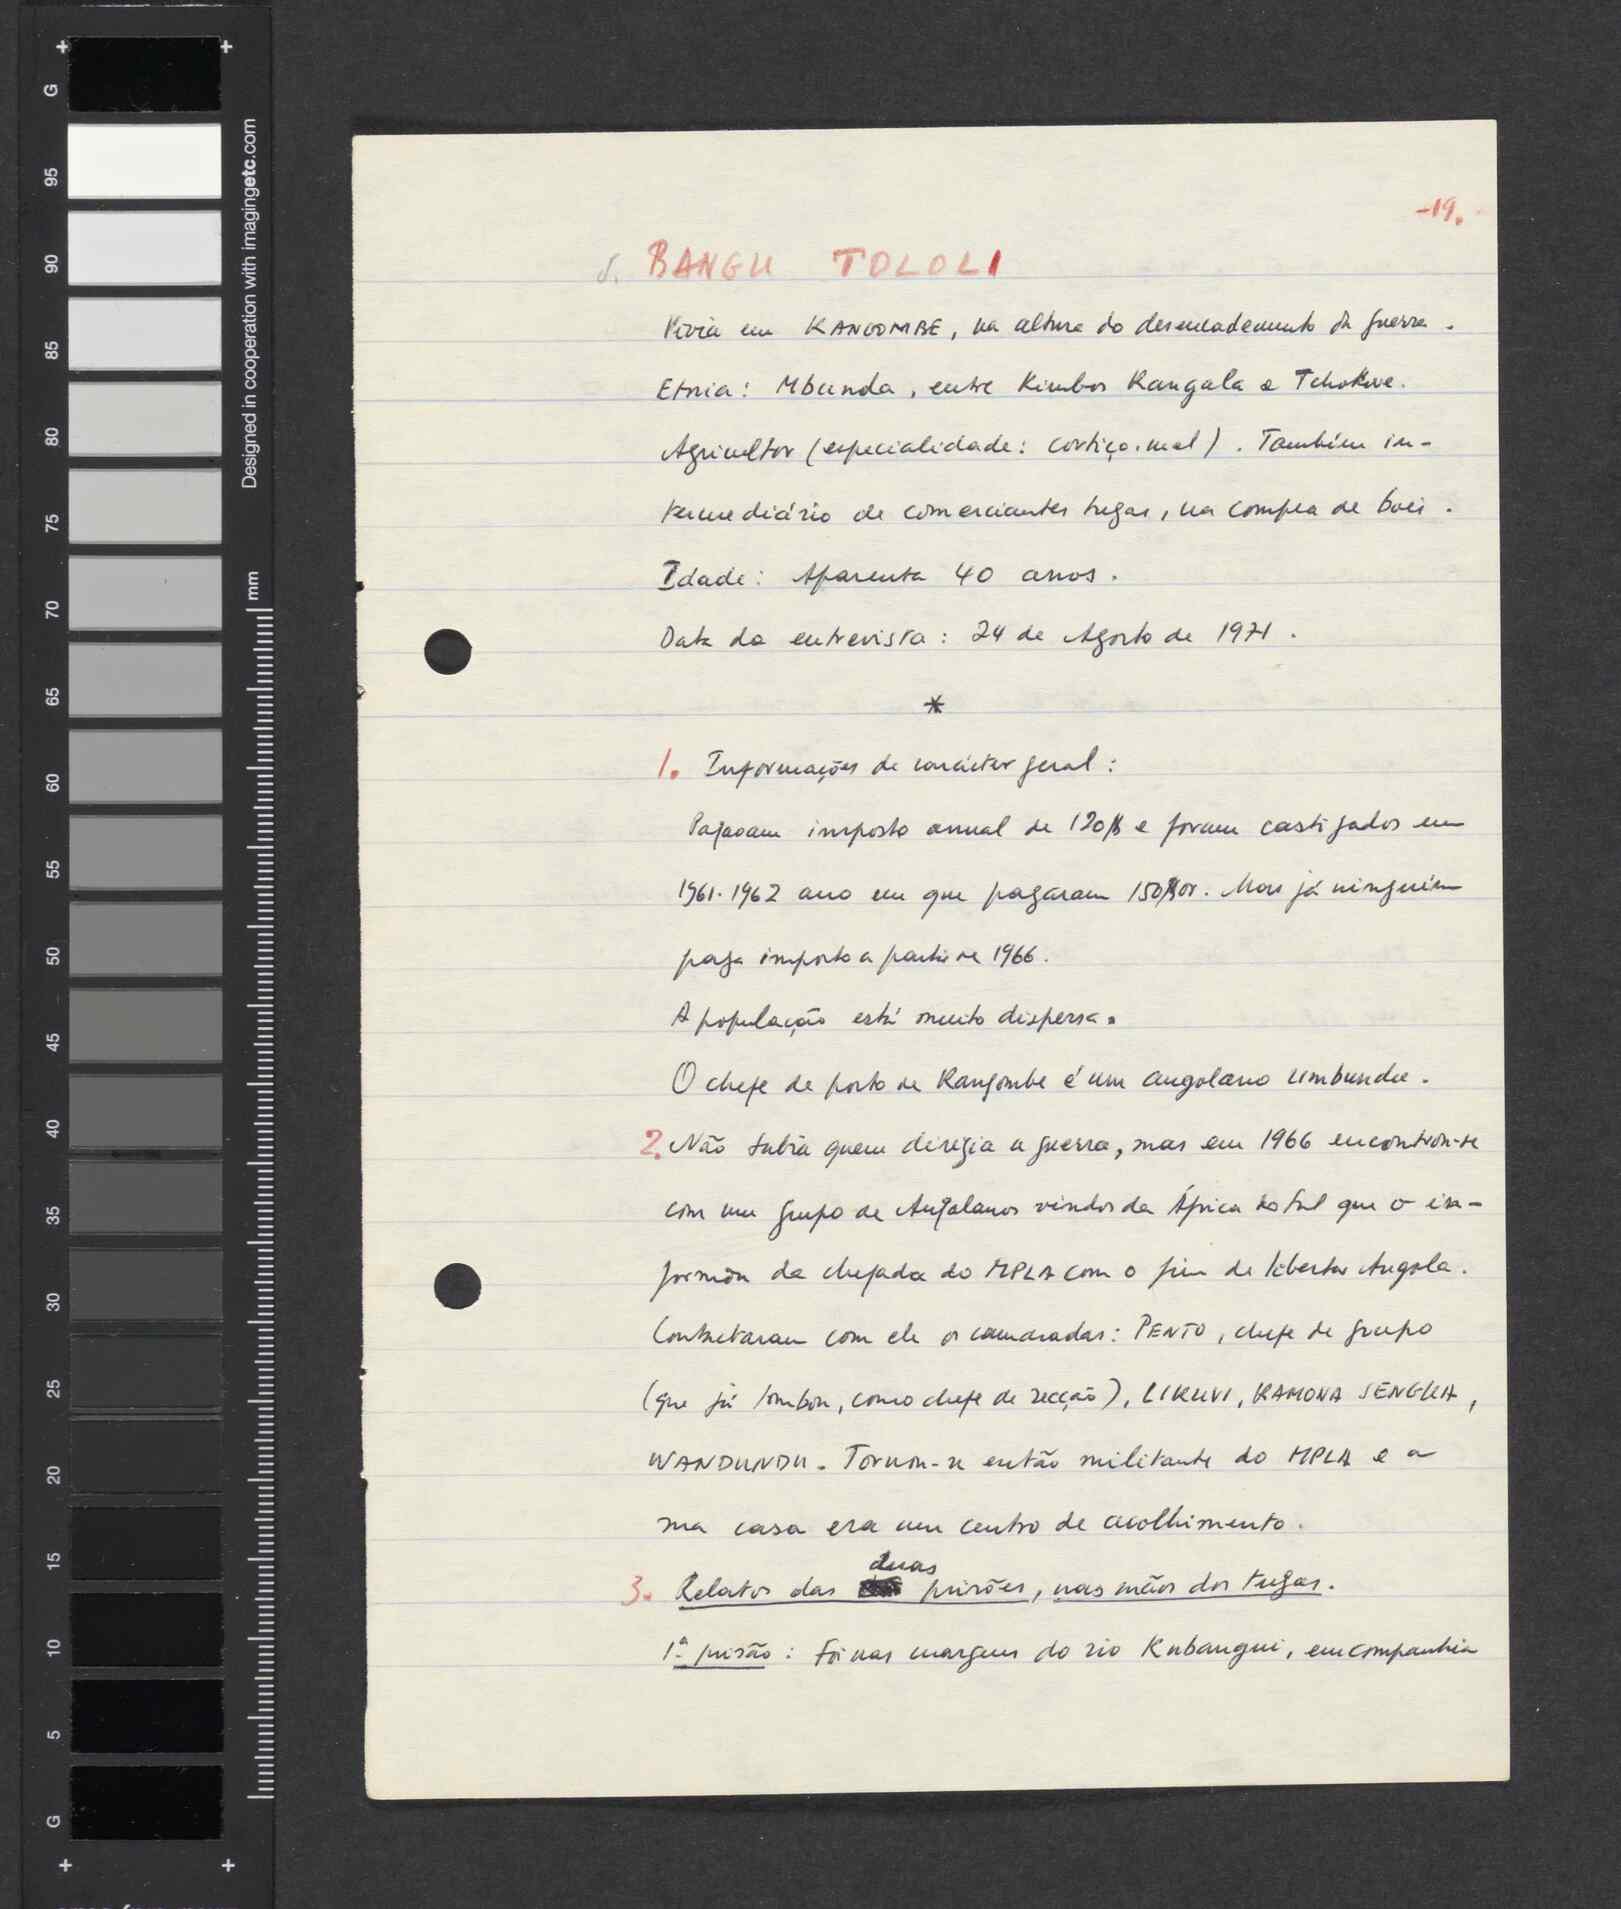 -19.
5. BANGU TOLOLI
Vivia em KANGOMBE, na altura do desencadeamento da guerra.
Etnia: Mbunda, entre Kimbos Kangala e Tchokwe.
Agricultor (especialidade: cortiço.mel). Também in-
termediário de comerciantes tugas, na compra de bois.
Idade: Aparenta 40 anos.
Data da entrevista: 24 de Agosto de 1971.
*
1. Informações de carácter geral:
Pagavam imposto anual de 120$ e foram castigados em
1961-1962 ano em que pagaram 150$00. Mas já ninguém
paga imposto a partir de 1966.
A população está muito dispersa.
O chefe de posto de Kangombe é um angolano umbundu.
2. Não sabia quem dirigia a guerra, mas em 1966 encontrou-se
com um grupo de Angolanos vindos da África do Sul que o in-
formou da chegada do MPLA com o fim de libertar Angola.
Contactaram com ele os camaradas: PENTO, chefe de grupo
(que já tombou, como chefe de secção), LIKUVI, KAMONA SENGUA,
WANDUNDU. Tornou-se então militante do MPLA e a
sua casa era um centro de acolhimento.
duas
3. Relatos das prisões, nas mãos dos tugas.
1ª prisão: Foi nas margens do rio Kubangui, em companhia
G
95
90
85
80
75
70
65
60
55
50
45
40
35
30
25
20
15
10
5
G
mm
Designed in cooperation with imagingetc.com